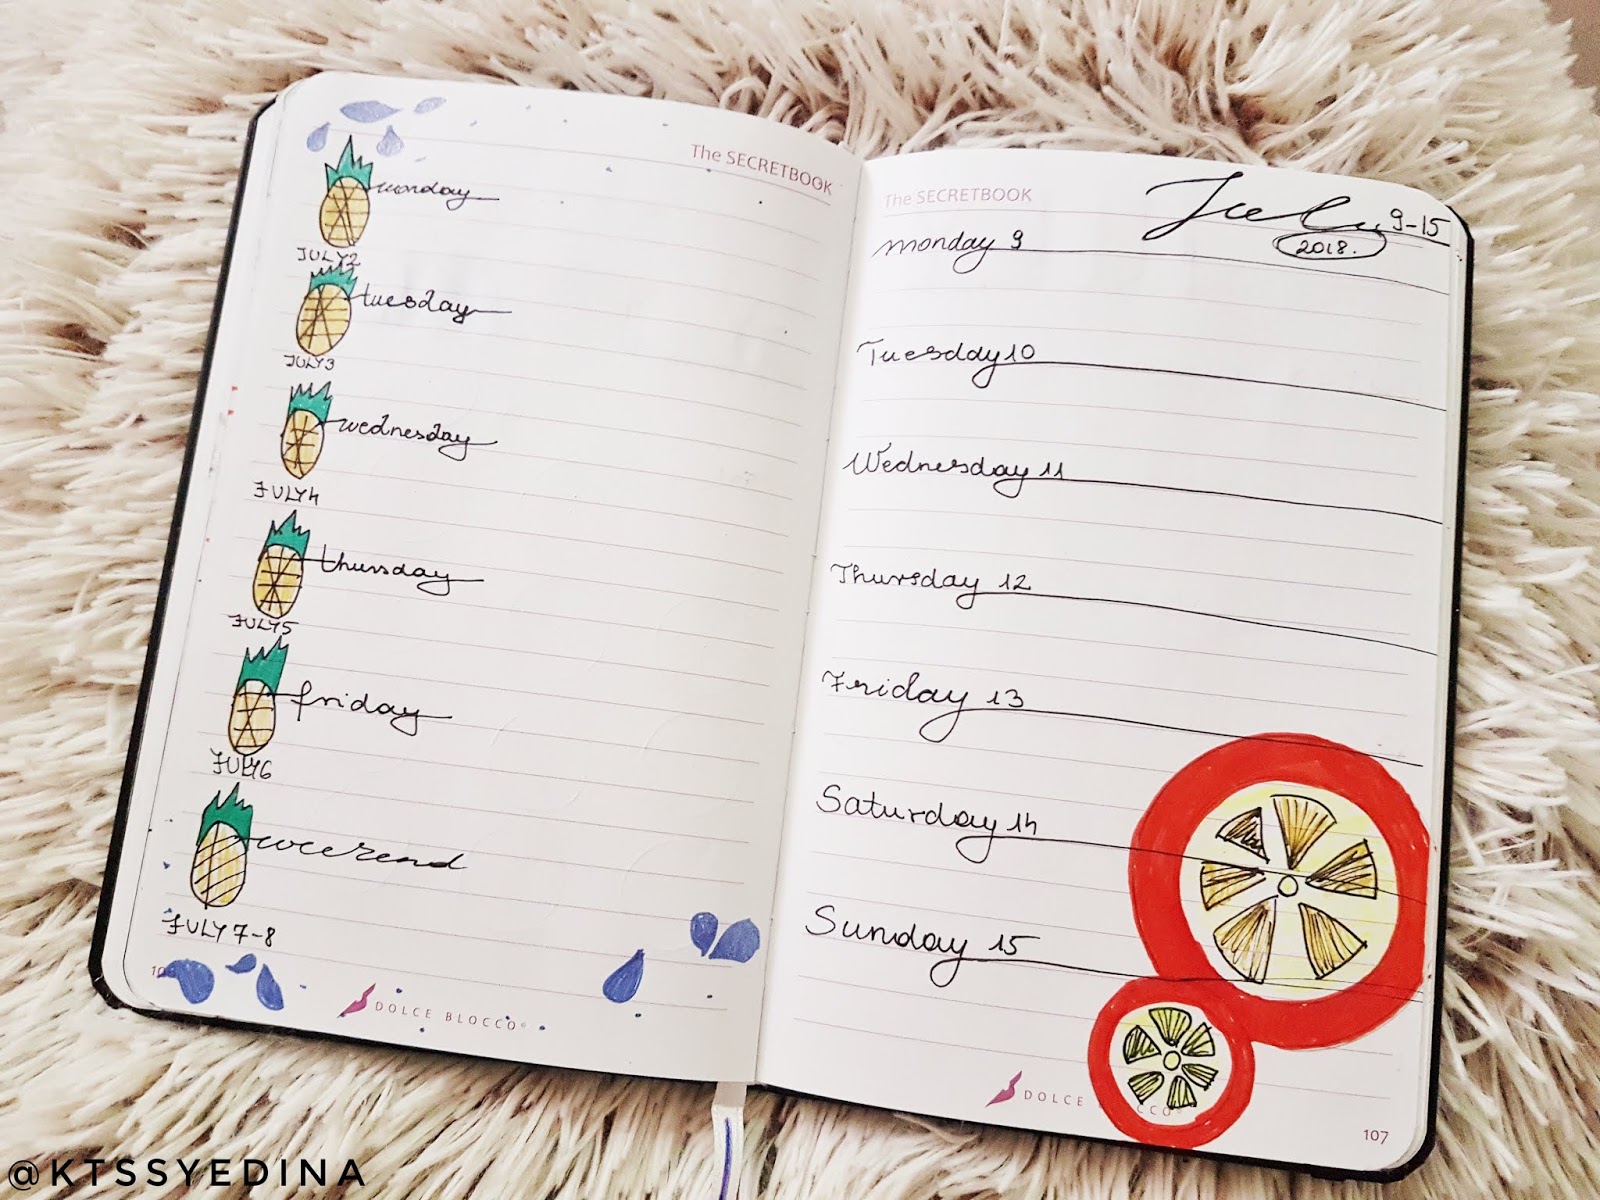 The SECRETBOOK
monday
JULY 2
tuesday
JULY 3
wednesday
JULY 4
thursday
JULY 5
friday
JULY 6
weekend
JULY 7-8
DOLCE BLOCCO®
The SECRETBOOK
July 9-15
2018.
monday 9
Tuesday 10
Wednesday 11
Thursday 12
Friday 13
Saturday 14
Sunday 15
DOLCE
CCO®
107
@KTSSYEDINA